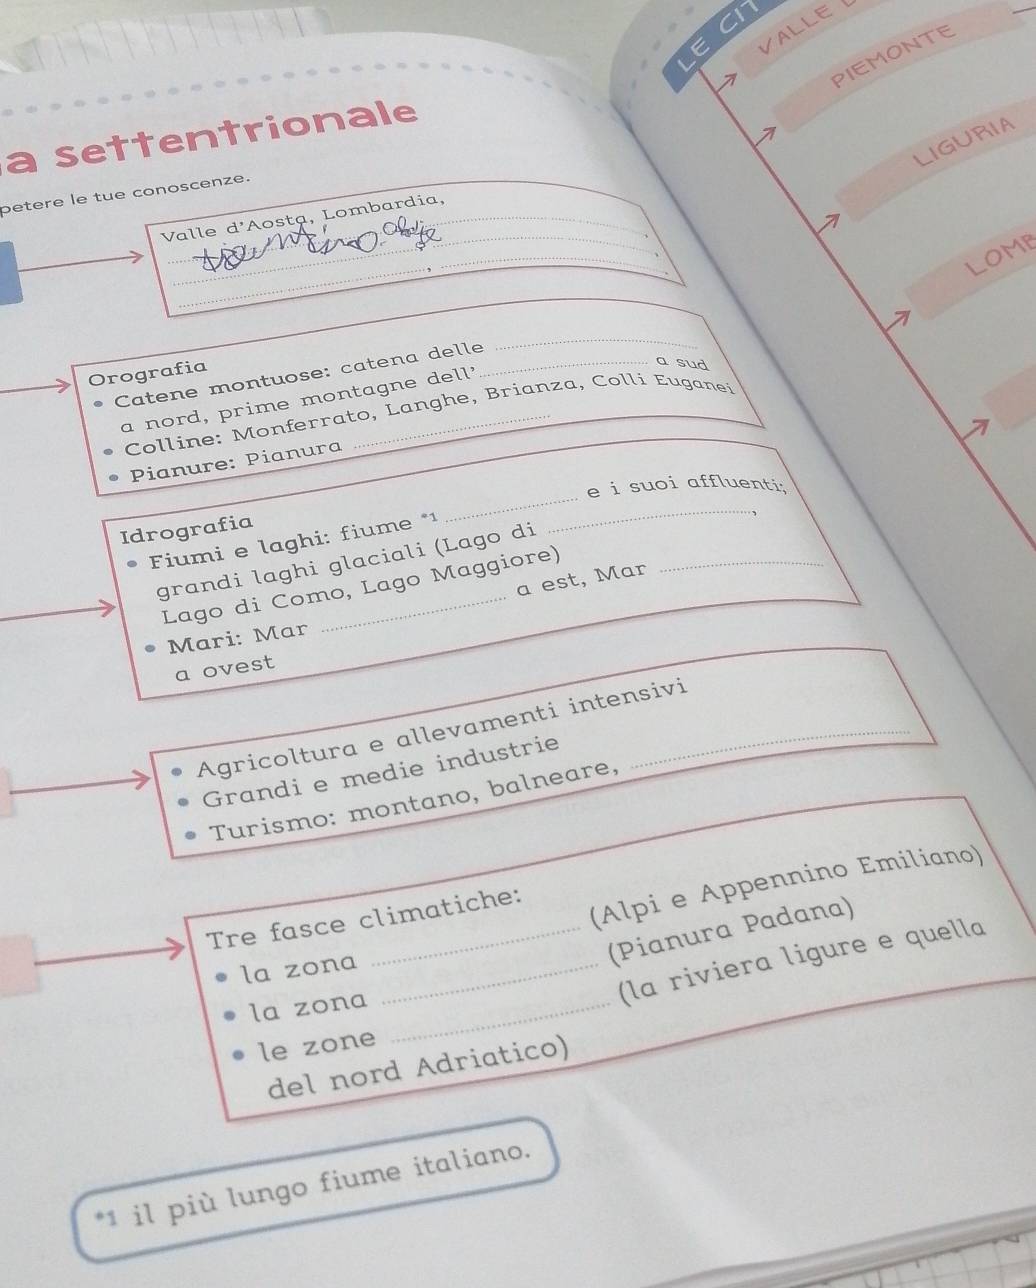 a settentrionale
petere le tue conoscenze.
Valle d'Aosta, Lombardia,
Orografia
• Catene montuose: catena delle
a nord, prime montagne dell' a sud
• Colline: Monferrato, Langhe, Brianza, Colli Euganei
• Pianure: Pianura
Idrografia
• Fiumi e laghi: fiume *1 e i suoi affluenti;
grandi laghi glaciali (Lago di ,
Lago di Como, Lago Maggiore)
• Mari: Mar a est, Mar
a ovest
• Agricoltura e allevamenti intensivi
• Grandi e medie industrie
• Turismo: montano, balneare,
Tre fasce climatiche:
• la zona (Alpi e Appennino Emiliano)
• la zona (Pianura Padana)
• le zone (la riviera ligure e quella
del nord Adriatico)
*1 il più lungo fiume italiano.
LE CIT
VALLE D
PIEMONTE
LIGURIA
LOMB